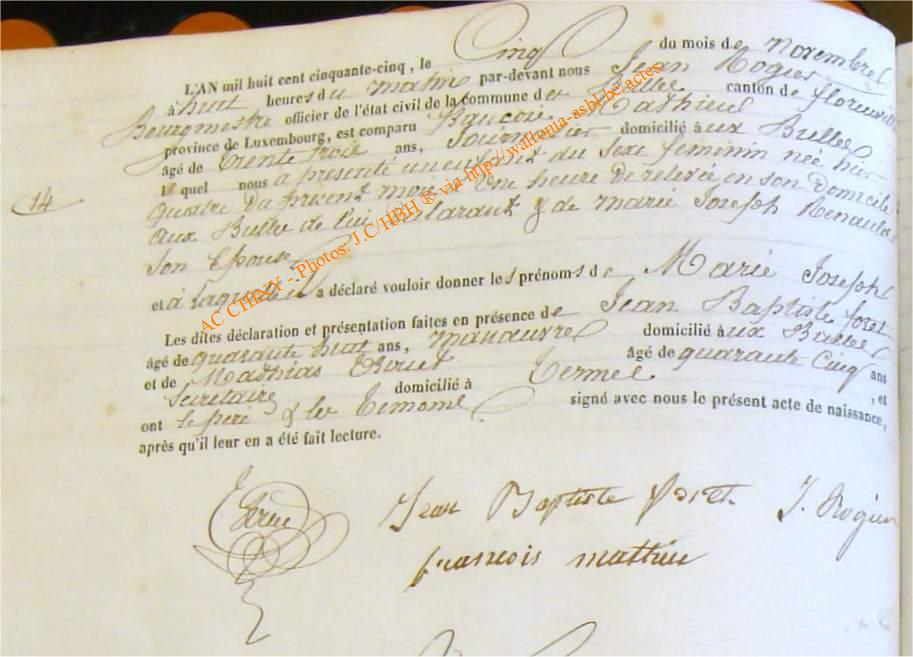 L'AN mil huit cent cinquante-cinq, le Cinq du mois de novembre
à huit heures du matin par-devant nous Jean Rogier
Bourgmestre officier de l'état civil de la commune de Bulles canton de florenville
province de Luxembourg, est comparu François Mathieu
âgé de trente trois ans, Journalier domicilié aux Bulles
le quel nous a présenté un enfant du sexe feminin née hier
14
quatre du present mois Une heure de relevée en son Domicile
aux Bulles de lui déclarant & de marie Joseph Renauld
son Epouse
et à laquelle il a déclaré vouloir donner les prénoms de Marie Joseph
Les dites déclaration et présentation faites en présence de Jean Baptiste foret
âgé de quarante huit ans, manœuvre domicilié aux Bulles
et de Mathias âgé de quarante Cinq ans
secrétaire domicilié à Termes , et
ont le père & les temoins signé avec nous le présent acte de naissance,
après qu'il leur en a été fait lecture.
Jean Baptiste foret J. Rogier
françois mathieu
AC CHINY - Photos: J.C/HBH ® via http://wallonia-asbl.be/actes